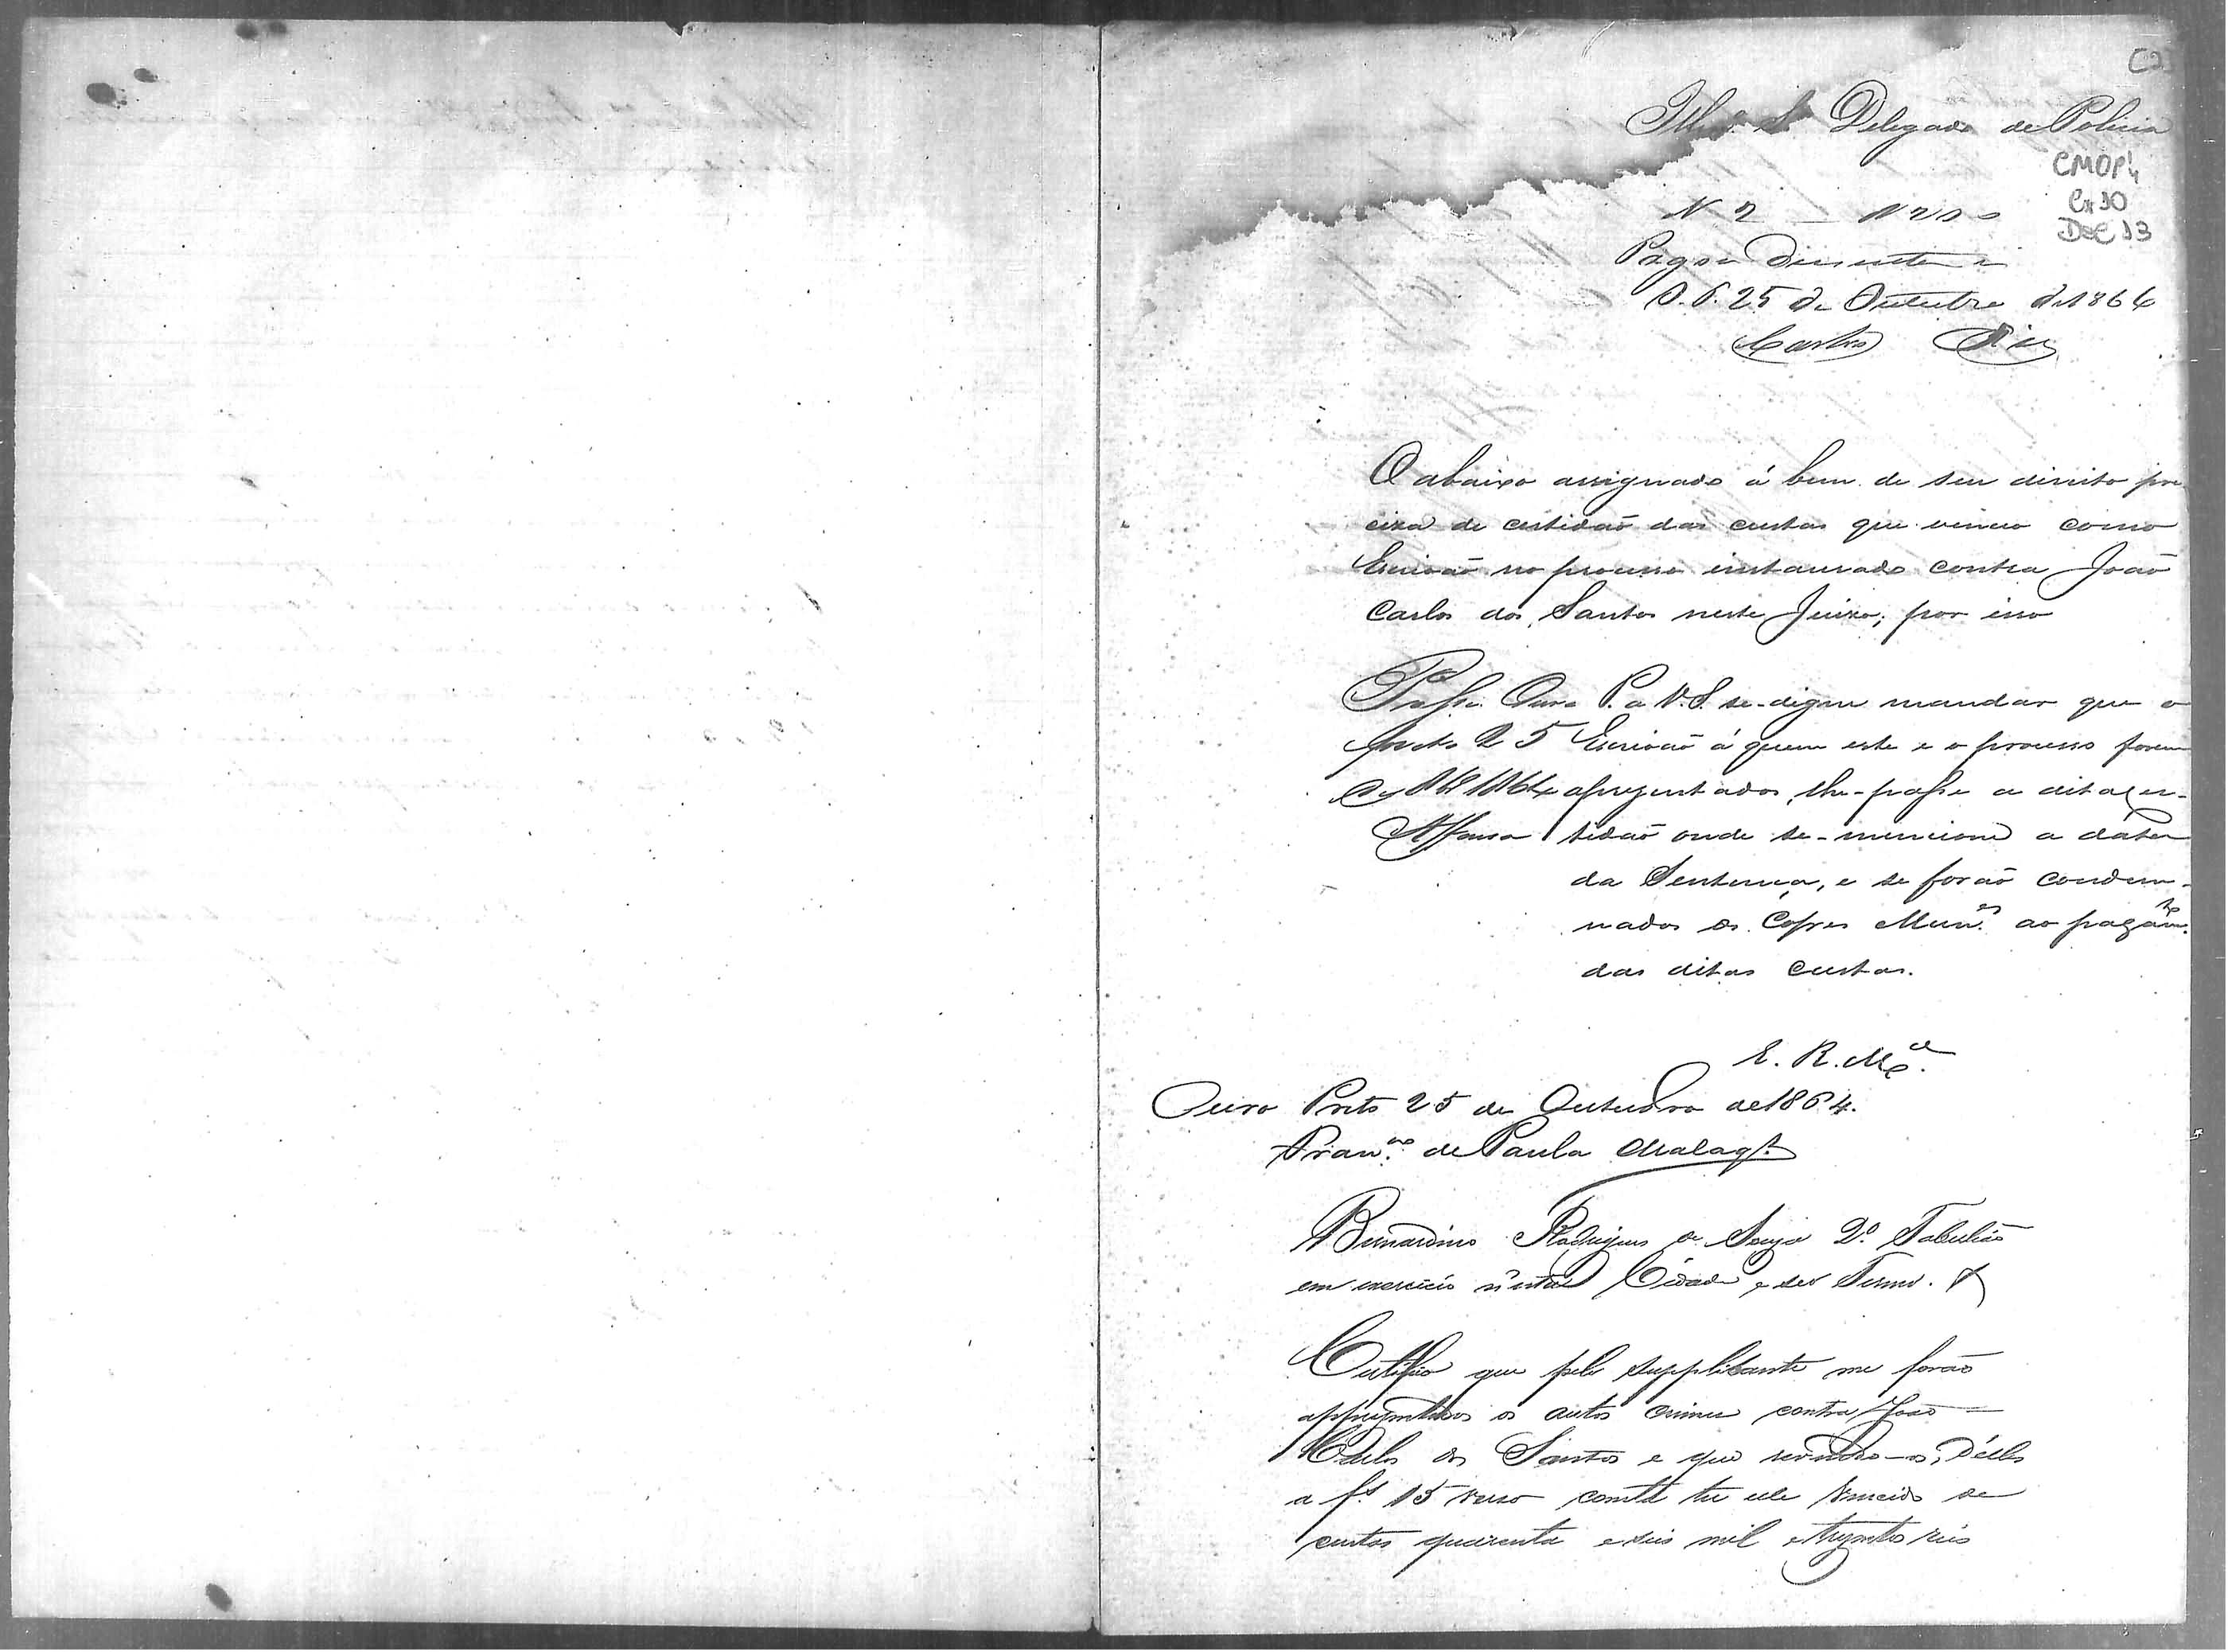 Illmo. Sr. Delegado de Policia
CMOP
Cx 90
DOC 13
N 2 N 200
Pagou duzentos
O. P. 25 de Outubro de 1864
Castro Dias
O abaixo assignado á bem de seu direito pre-
ciza de certidaõ das custas que venceo como
Escrivaõ no processo instaurado contra Joaõ
Carlos dos Santos neste Juizo; por isso
Passe. Ouro P. a V. S. se-digne mandar que o
Preto 25 Escrivaõ á quem este e o processo forem
1864 aprezentados, lhe-passe a dita cer-
Affonso tidaõ onde se-mencione a data
da Sentença, e se foraõ condem-
nados os Cofres Mun.es ao pagam.to
das ditas custas.
E. R. M.ce
Ouro Preto 25 de Outubro de 1864.
Fran.co de Paula Malag.
Bernardino Rodrigues de Souza 2.º Tabeliaõ
em exercicio n'esta Cidade e seo Termo. &
Certifico que pelo supplicante me foraõ
appresentados os autos crimes contra Joaõ
Carlos dos Santos e que revendo-os, d'elles
a f.s 15 verso consta ter elle vencido de
custas quarenta e seis mil e trezentos reis